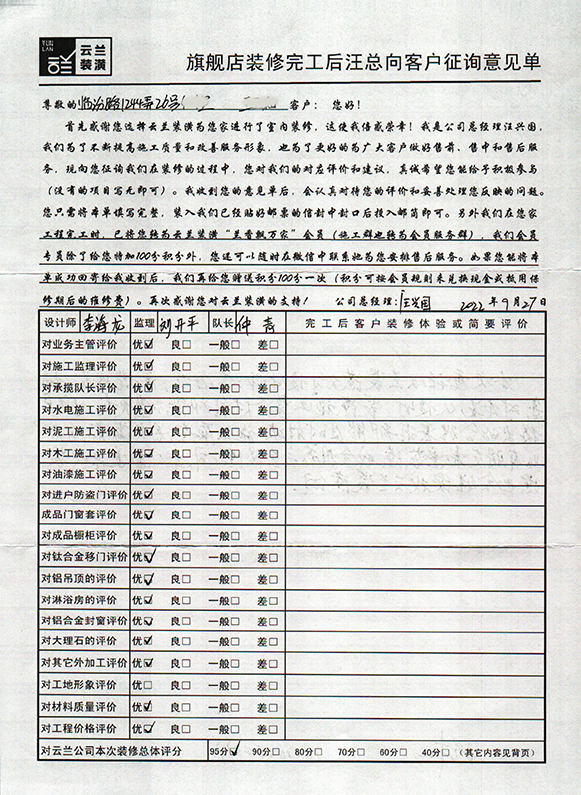 YUN LAN
云兰装潢
旗舰店装修完工后汪总向客户征询意见单
尊敬的临汾路1244弄26号 客户：您好！
首先感谢您选择云兰装潢为您家进行了室内装修，这使我倍感荣幸！我是公司总经理汪兴国，
我们为了不断提高施工质量和改善服务形象，也为了更好的为广大客户做好售前、售中和售后服
务，现向您征询我们在装修的过程中，您对我们的对应评价和建议，真诚希望您能给予积极参与
（没有的项目写无即可）。我收到您的意见单后，会认真对待您的评价和妥善处理您反映的问题。
您只需将本单填写完整，装入我们已经贴好邮票的信封中封口后投入邮筒即可。另外我们在您家
工程完工时，已将您转为云兰装潢“兰香飘万家”会员（施工群也转为会员服务群），我们会员
专员除了给您特加100分积分外，您还可以随时在微信中联系她为您安排售后服务。如果您能将本
单成功回寄给我收到后，我们再给您赠送积分100分一次（积分可按会员规则来兑换现金或抵用保
修期后的维修费）。再次感谢您对云兰装潢的支持！ 公司总经理：汪兴国 2022年9月27日
设计师 李海龙 监理 刘开平 队长 仲青 完工后客户装修体验或简要评价
对业务主管评价 优☑ 良□ 一般□ 差□
对施工监理评价 优☑ 良□ 一般□ 差□
对承揽队长评价 优☑ 良□ 一般□ 差□
对水电施工评价 优☑ 良□ 一般□ 差□
对泥工施工评价 优☑ 良□ 一般□ 差□
对木工施工评价 优☑ 良□ 一般□ 差□
对油漆施工评价 优☑ 良□ 一般□ 差□
对进户防盗门评价 优☑ 良□ 一般□ 差□
成品门窗套评价 优☑ 良□ 一般□ 差□
对成品橱柜评价 优☑ 良□ 一般□ 差□
对钛合金移门评价 优☑ 良□ 一般□ 差□
对铝吊顶的评价 优☑ 良□ 一般□ 差□
对淋浴房的评价 优☑ 良□ 一般□ 差□
对铝合金封窗评价 优☑ 良□ 一般□ 差□
对大理石的评价 优☑ 良□ 一般□ 差□
对其它外加工评价 优☑ 良□ 一般□ 差□
对工地形象评价 优□ 良□ 一般□ 差□
对材料质量评价 优☑ 良□ 一般□ 差□
对工程价格评价 优☑ 良□ 一般□ 差□
对云兰公司本次装修总体评分 95分☑ 90分□ 80分□ 70分□ 60分□ 40分□（其它内容见背页）